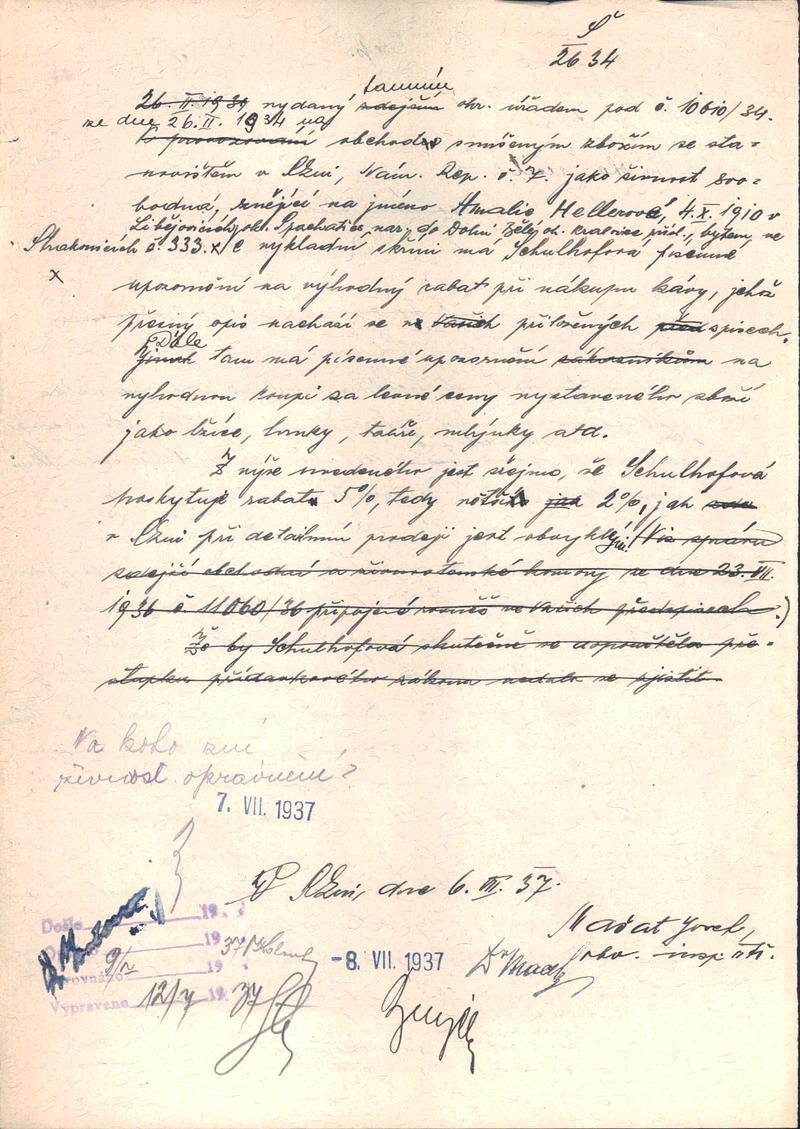 Š
26 34
tamním
26. II. 1934 vydaný zdejším okr. úřadem pod č. 10610/34.
ze dne 26. II. 1934 na
k provozování obchodu smíšeným zbožím se sta-
novištěm v Plzni, Nám. Rep. č. 7. jako živnost svo-
bodná, znějící na jméno Amalie Hellerová, 4. X. 1910 v
Libějovicích, okr. nar., do Dolní Bělé, o. Kralovice přísl., bytem, ve
Strakonicích č. 333. x Ve výkladní skříni má Schulhofová písemné
x
upozornění na výhodný rabat při nákupu kávy, jehož
přesný opis nachází se v přiložených spisech.
Dále
Jinak tam má písemné upozornění zákazníkům na
výhodnou koupi za levné ceny vystaveného zboží
jako lžíce, hrnky, talíře, mlýnky atd.
Z výše uvedeného jest zřejmo, že Schulhofová
poskytuje rabat 5%, tedy větší jak 2%, jak zde
v Plzni při detailním prodeji jest obvyklý. (Viz zprávu
zdejší obchodní a živnostenské komory ze dne 23. VII.
1936 č. 11060/36 připojené rovněž ve zdejších předspisech.)
Že by Schulhofová skutečně se dopouštěla pře-
stupku přídavkového zákona nedalo se zjistit.
Na koho zní
živnost. oprávnění?
7. VII. 1937
V Plzni, dne 6. VII. 37.
Mašat Josef,
obv. insp. stř.
Došlo 19
9/7 19 37
Srovnáno 19
-8. VII. 1937
Vypraveno 12/7 19 37